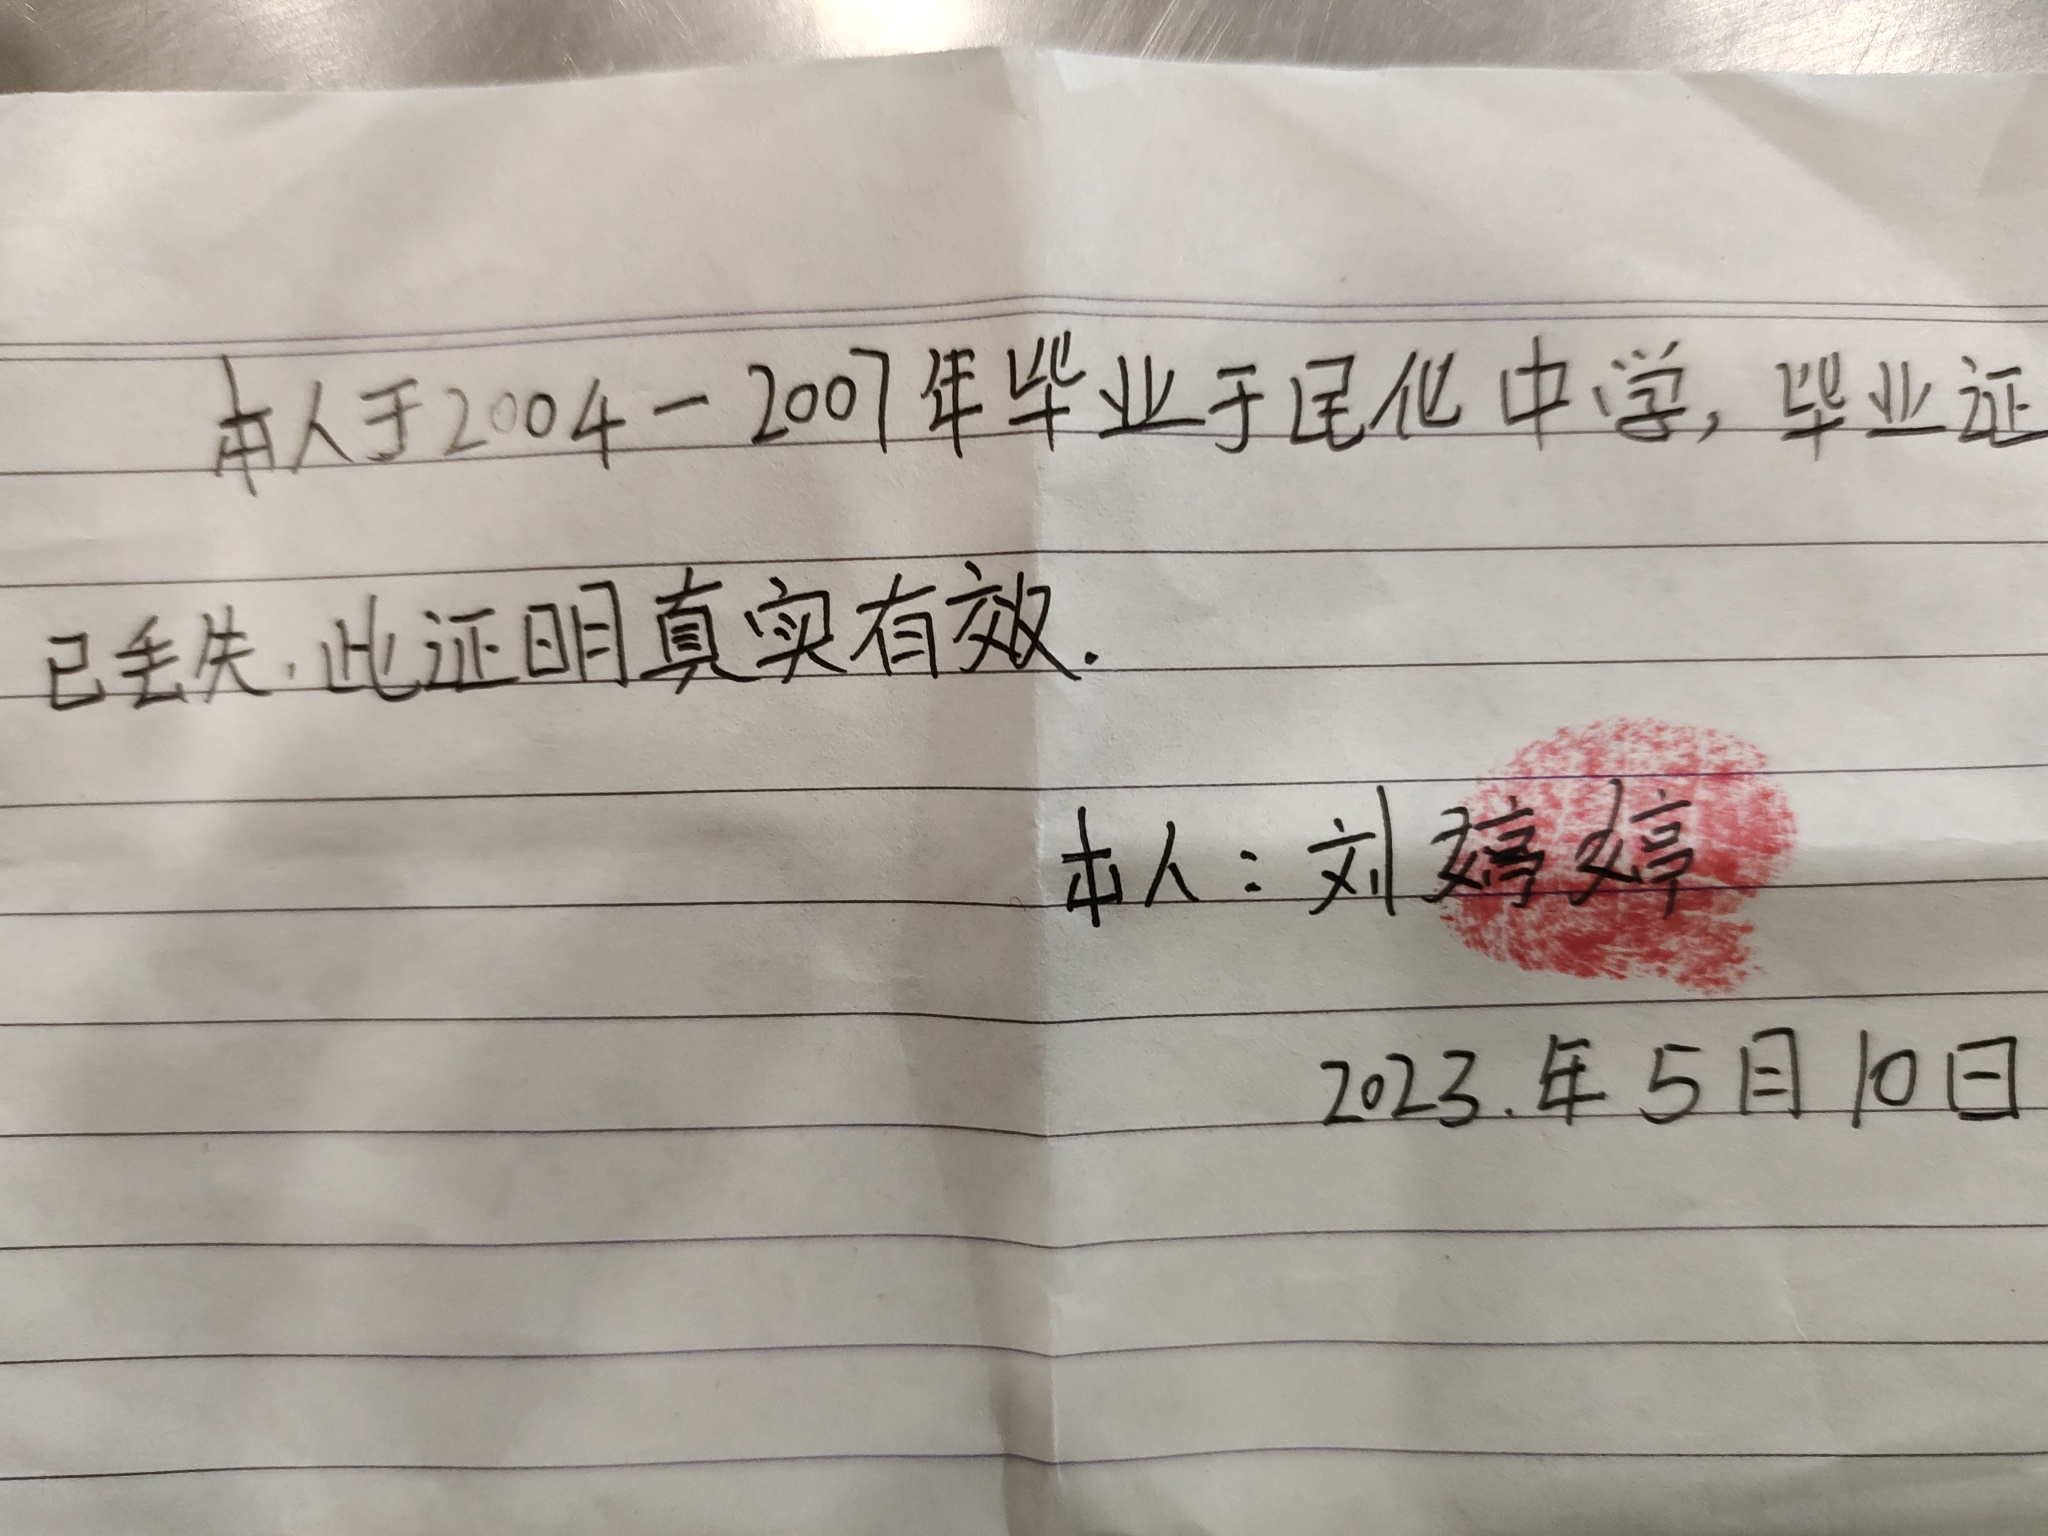 本人于2004-2007年毕业于民化中学，毕业证
已丢失.此证明真实有效.
本人：刘婷婷
2023.年5月10日